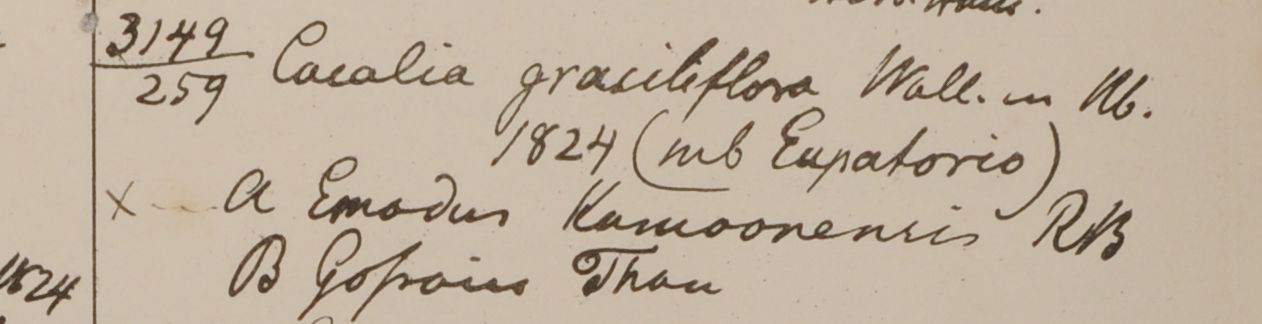 3149
259 Cacalia graciliflora Wall. in Hb.
1824 (sub Eupatorio)
x a Emodus Kamoonensis RB
B Gossain Than
1824